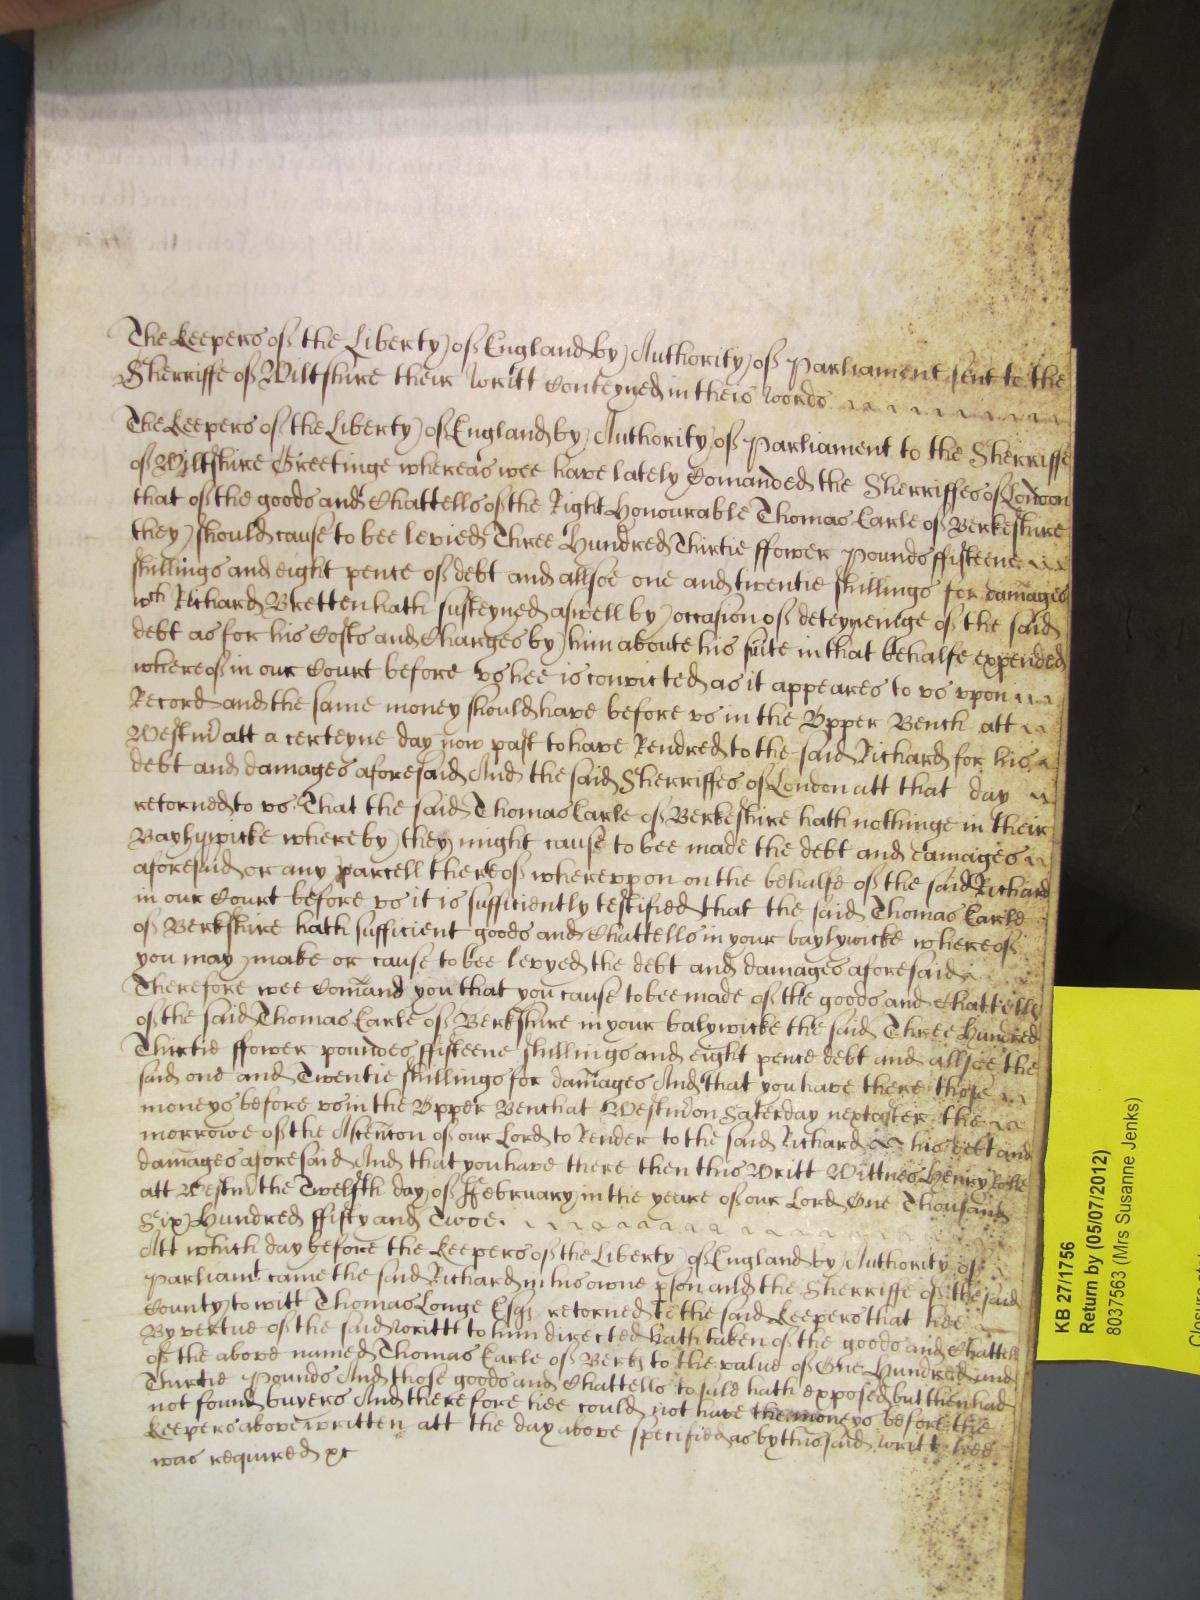 The Keepers of the Liberty of England by Authority of Parliament sent to the
Sherriffe of Wiltshire their writt Conteyned in theis words
The Keepers of the Liberty of England by Authority of Parliament to the Sherriffe
of Wiltshire Greetinge whereas wee have lately Comanded the Sherriffes of London
that of the goods and Chattells of the Right Honourable Thomas Earle of Berkeshire
they should cause to bee levied Three Hundred Thirtie ffower pounds ffifteene
shillings and eight pence of debt and allsoe one and twentie shillings for damages
wch Richard Bretten hath susteyned aswell by occasion of deteyneinge of the said
debt as for his Costs and Charges by him aboute his suite in that behalfe expended
whereof in our Court before vs hee is convicted as it appeares to vs vpon
Record and the same money should have before vs in the Vpper Bench att
Westmr att a certeyne day now past to have Rendred to the said Richard for his
debt and damages aforesaid And the said Sherriffes of London att that day
retorned to vs That the said Thomas Earle of Berkeshire hath nothinge in their
Baylywicke whereby they might cause to bee made the debt and damages
aforesaid or any parcell thereof wherevpon on the behalfe of the said Richard
in our Court before vs it is sufficiently testified that the said Thomas Earle
of Berkshire hath sufficient goods and Chattells in your baylywicke whereof
you may make or cause to bee levyed the debt and damages aforesaid
Therefore wee Comand you that you cause to bee made of the goods and Chattells
of the said Thomas Earle of Berkshire in your balywicke the said Three Hundred
Thirtie ffower poundes ffifteene shillings and eight pence debt and allsoe the
said one and Twentie shillings for damages And that you have there those
moneys before vs in the Vpper Bench at Westmr on Saterday next after the
morrowe of the Ascencon of our Lord to Render to the said Richard his debt and
damages aforesaid And that you have there then this Writt Wittnes Henry Rolle
att Westmr the Twelfth day of ffebruary in the yeare of our Lord One Thousand
Six Hundred ffifty and Twoe.
Att which day before the Keepers of the Liberty of England by Authority of
Parliamt came the said Richard in his owne pson and the Sherriffe of the said
County to witt Thomas Longe Esqr retorned to the said Keepers that hee
By vertue of the said writt to him directed hath taken of the goods and Chattells
of the above named Thomas Earle of Berks to the value of One Hundred and
Thirtie Pounds And those goods and Chattells to sale hath exposed but then had
not found buyers And therefore hee could not have the moneys before the
Keepers above written att the day above specified as by this said writt hee
was required &c
KB 27/1756
Return by (05/07/2012)
8037563 (Mrs Susanne Jenks)